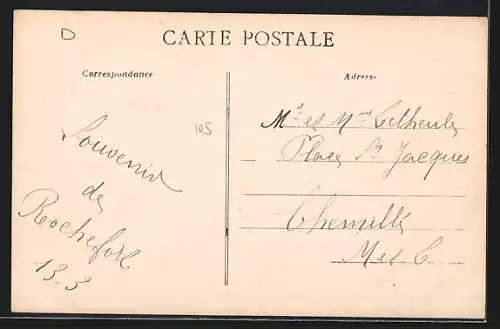 D
CARTE POSTALE
Correspondance
Adresse
105
Souvenir
de
Rochefort
13-3
Mr et Mme
Place St Jacques
Chemillé
M et L